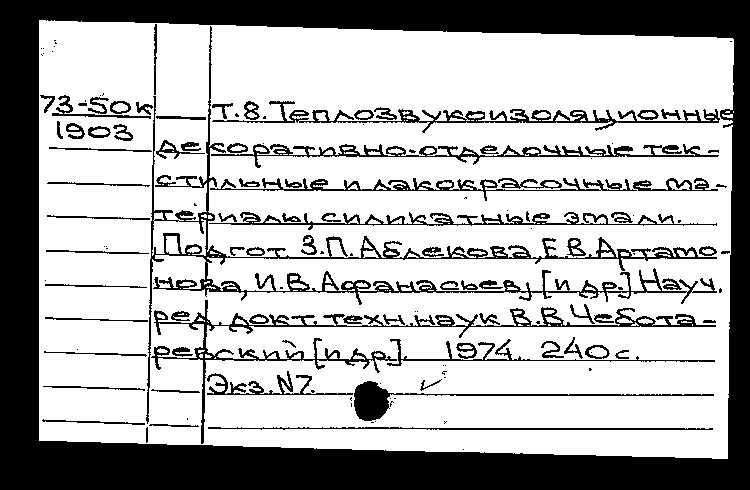 73-50к Т.8. Теплозвукоизоляционные
1903
декоративно-отделочные тек-
стильные и лакокрасочные ма-
териалы, силикатные эмали.
[Подгот. З.П. Аблекова, Е.В. Артамо-
нова, И.В. Афанасьев, [и др.] Науч.
ред. докт. техн. наук В.В. Чебота-
ревский [и др.]. 1974. 240 с.
Экз. N7.